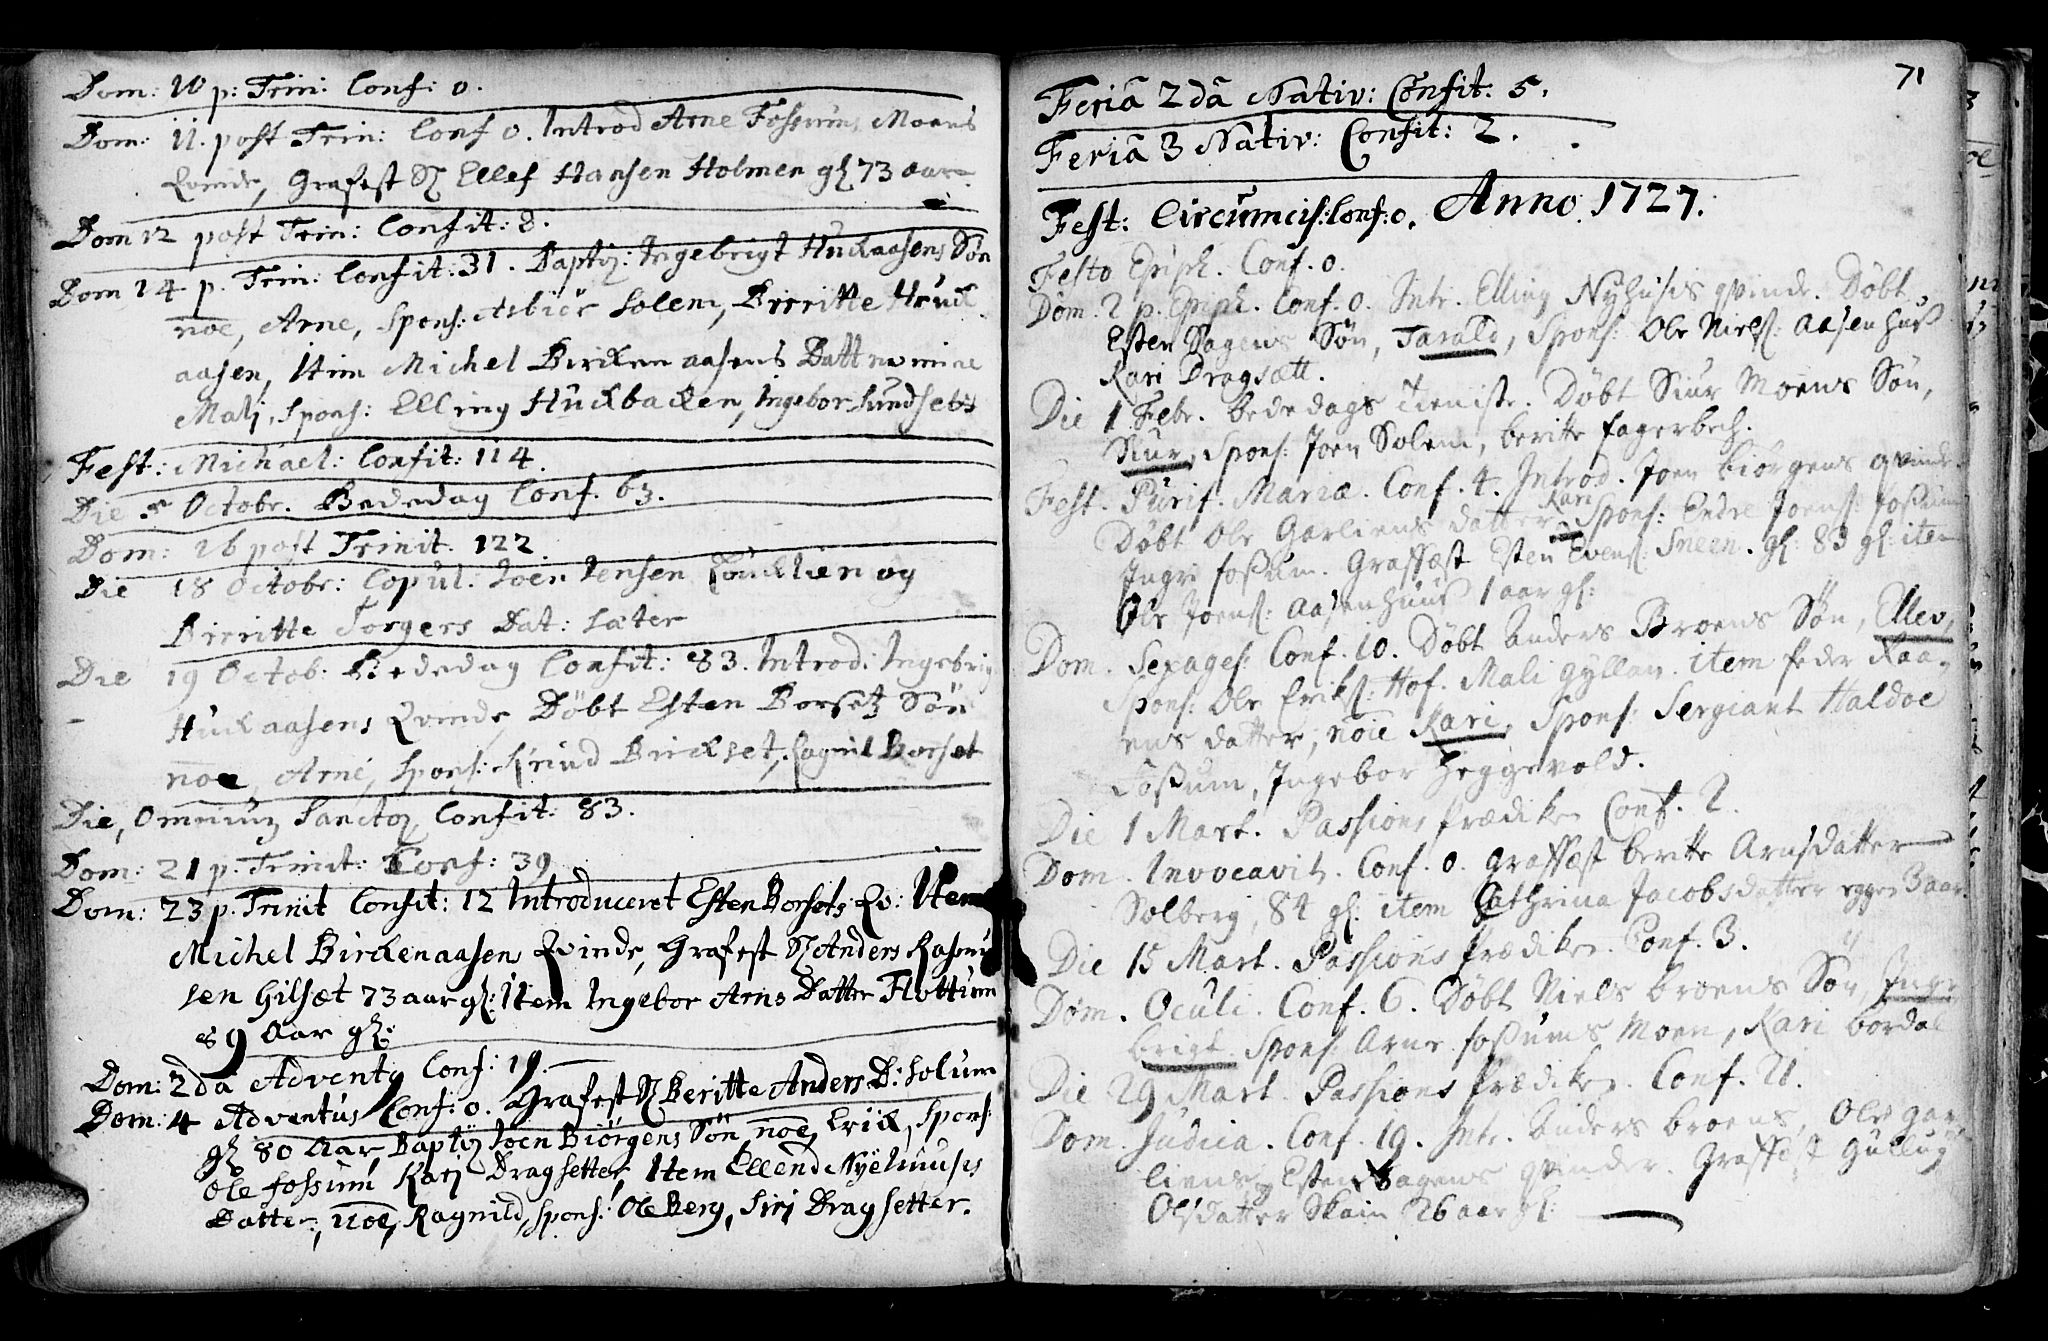 Dom: 10 p: Trin: Conf: 0.
Dom: 11. post Trin: Conf 0. Introd Arne Fossums Moens
Qvinde, Grafest Ellef Hansen Holmen gl 73 aar
Dom 12 post Trin: Confit: 8.
Dom 14 p. Trin: Confit: 31. Baptiz: Ingebrigt Huckaasens Søn
noe, Arne, Spons: Asbiør Solem, Birritte Huck
aasen, Item Michel Birckenaasens Datt nomine
Mali, Spons: Elling Huckbacken, Ingebor Sundset
Fest: Michael: Confit: 114.
Die Octobr. Bededag Conf. 63.
Dom: 16 post Trinit. 122.
Die 18 Octobr: Copul. Joen Jensen og
Birritte Torgers Dat: Sæter
Die 19 Octob. Bededag Confit: 83. Introd: Ingebrig
Huckaasens Qvinde, Döbt Esten Borsetz Sön
noe, Arne, Spons: Knud Birckset, Ragnil Borset
Die, Omnium Sanctor Confit: 83.
Dom: 21 p. Trinit: Conf: 39
Dom: 23 p. Trinit Confit: 12 Introduceret Esten Borsets Qv: Item
Michel Birckenaasens Qvinde, Grafest Anders Rasmu
sen Gilsæt 73 aar gl: Item Ingebor Arns Datter Flottum
89 Aar gl:
Dom: 2da Adventus Conf: 19.
Dom: 4 Adventus Conf: 0. Grafest Beritte Anders D: Solum
gl 80 Aar, Baptiz Joen Biörgens Sön, noe, Erick, Spons:
Ole Fossum, Kari Dragsetter, Item Ellend Nyehuusis
Datter, noe, Ragnild, Spons: Ole Berg, Siri Dragsetter.
71
Feria 2da Nativ: Confit: 5.
Feria 3 Nativ: Confit: 2.
Fest: Circumcis: Conf: 0. Anno 1727.
Festo Epiph. Conf. 0.
Dom. 2 p. Epiph. Conf. 0. Intr. Elling Nyhusis qvinde. Döbt
Esten Hagens Sön, Tarald, Spons: Ole Niels: Aasenhus
Kari Dragsætt.
Die 1 Febr. bededags tieniste. Döbt Siur Moens Sön,
Siur, Spons: Joen Solem, beritte fagerbech.
Fest. Purif. Mariæ. Conf. 4. Introd. Joen biörgens qvinde
Döbt Ole Garliens datter Kari Spons: Endre Joens: foßum
Ingri foßum. Graffæst Esten Evens: Sneen. gl: 83 gl: item
Ole Joens: Aasenhuus 1 aar gl:
Dom. Sexages: Conf. 10. Döbt Anders Broens Sön, Ellev,
Spons: Ole Eriks: Hof. Mali Gyllan. item Peder Kaa-
ens datter, noie Kari, Spons: Sergeant Haldoe
Foßum, Ingebor Heggevold.
Die 1 Mart. Passions prædiken Conf. 2.
Dom. Invocavit. Conf. 0. graffæst beritte Arnsdatter
Solberg, 84 gl: item Cathrina Jacobsdatter 3 aar.
Die 15 Mart. Passions prædiken. Conf. 3.
Dom. Oculi. Conf. 6. Döbt Niels broens Sön, Inge
brigt Spons: Arne foßums Moen, Kari bordal
Die 29 Mart. Passions prædiken. Conf. 21.
Dom. Judica. Conf. 19. Intr. Anders broens, Ole gar
liens, Esten Hagens qvinder. Graffæst Gullug
Olsdatter Skain 26 aar gl: